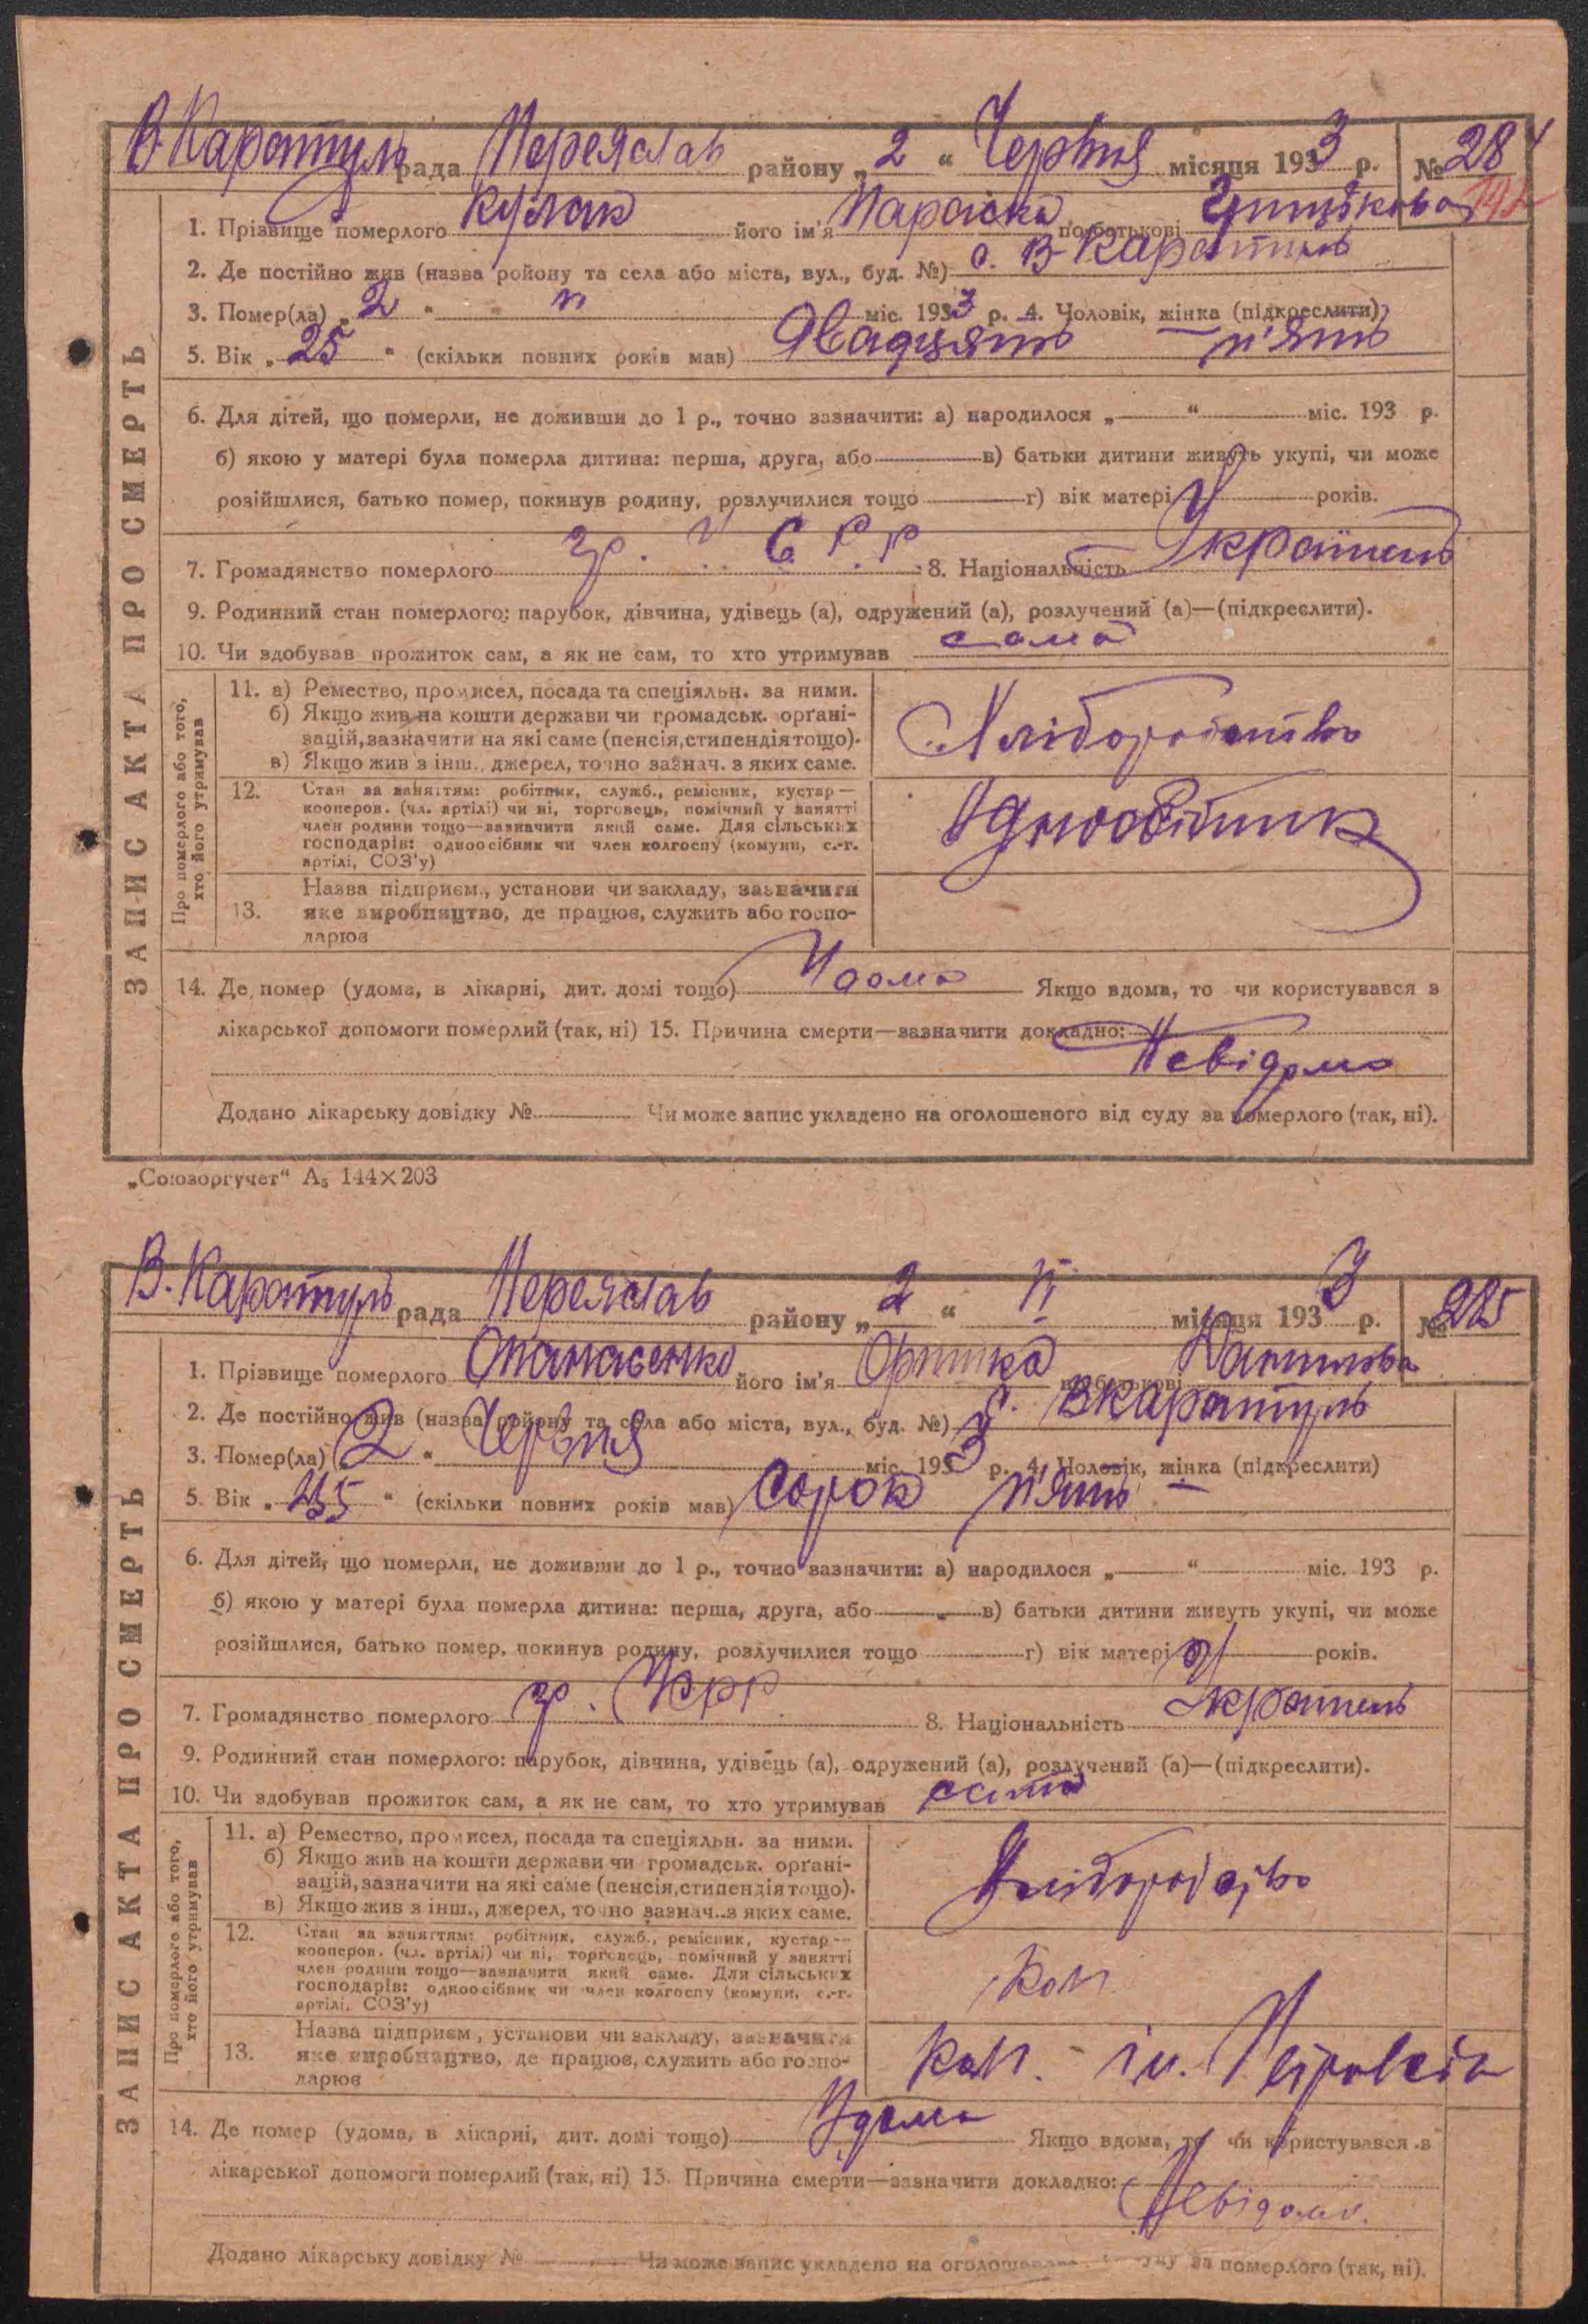 В-Каратуль рада Переяслав району „2“ Червня місяця 1933 р. № 284
1. Прізвище померлого Кулак його ім'я Параска по батькові
2. Де постійно жив (назва ройону та села або міста, вул., буд. №) с. В-Каратуль
3. Помер(ла) „2“ п міс. 1933 р. 4. Чоловік, жінка (підкреслити)
5. Вік „25“ (скільки повних років мав) Двадцять п'ять
6. Для дітей, що померли, не доживши до 1 р., точно зазначити: а) народилося „—“ міс. 193 р.
б) якою у матері була померла дитина: перша, друга, або — в) батьки дитини живуть укупі, чи може
розійшлися, батько помер, покинув родину, розлучилися тощо — г) вік матері — років.
7. Громадянство померлого гр. У.С.Р.Р 8. Національність Українець
9. Родинний стан померлого: парубок, дівчина, удівець (а), одружений (а), розлучений (а)—(підкреслити).
10. Чи здобував прожиток сам, а як не сам, то хто утримував сама
ЗАПИС АКТА ПРО СМЕРТЬ
Про померлого або того,
хто його утримував
11. а) Ремество, промисел, посада та спеціяльн. за ними.
б) Якщо жив на кошти держави чи громадськ. орґані-
зацій, зазначити на які саме (пенсія, стипендія тощо).
в) Якщо жив з інш., джерел, точно зазнач. з яких саме.
Хліборобство
12. Стан за заняттям: робітник, служб., ремісник, кустар—
кооперов. (чл. артілі) чи ні, торговець, помічний у занятті
член родини тощо—зазначити який саме. Для сільських
господарів: одноосібник чи член колгоспу (комуни, с.-г.
артілі, СОЗ'у)
Одноосібник
13. Назва підприєм., установи чи закладу, зазначити
яке виробництво, де працює, служить або госпо-
дарює
14. Де помер (удома, в лікарні, дит. домі тощо) Удома Якщо вдома, то чи користувався з
лікарської допомоги померлий (так, ні) 15. Причина смерти—зазначити докладно:
Невідома
Додано лікарську довідку № — Чи може запис укладено на оголошеного від суду за померлого (так, ні).
„Союзоргучет“ А₅ 144×203
В. Каратуль рада Переяслав району „2“ п місяця 1933 р. № 285
1. Прізвище померлого Опанасенко його ім'я Оришка по батькові Данилова
2. Де постійно жив (назва ройону та села або міста, вул., буд. №) с. В Каратуль
3. Помер(ла) „2“ Червня міс. 1933 р. 4. Чоловік, жінка (підкреслити)
5. Вік „45“ (скільки повних років мав) Сорок п'ять
6. Для дітей, що померли, не доживши до 1 р., точно зазначити: а) народилося „—“ міс. 193 р.
б) якою у матері була померла дитина: перша, друга, або — в) батьки дитини живуть укупі, чи може
розійшлися, батько помер, покинув родину, розлучилися тощо — г) вік матері — років.
7. Громадянство померлого гр. УСРР 8. Національність Українець
9. Родинний стан померлого: парубок, дівчина, удівець (а), одружений (а), розлучений (а)—(підкреслити).
10. Чи здобував прожиток сам, а як не сам, то хто утримував сама
ЗАПИС АКТА ПРО СМЕРТЬ
Про померлого або того,
хто його утримував
11. а) Ремество, промисел, посада та спеціяльн. за ними.
б) Якщо жив на кошти держави чи громадськ. орґані-
зацій, зазначити на які саме (пенсія, стипендія тощо).
в) Якщо жив з інш., джерел, точно зазнач. з яких саме.
Хліборобство
12. Стан за заняттям: робітник, служб., ремісник, кустар—
кооперов. (чл. артілі) чи ні, торговець, помічний у занятті
член родини тощо—зазначити який саме. Для сільських
господарів: одноосібник чи член колгоспу (комуни, с.-г.
артілі, СОЗ'у)
Кол.
13. Назва підприєм., установи чи закладу, зазначити
яке виробництво, де працює, служить або госпо-
дарює
Кол. ім. Петровськ
14. Де помер (удома, в лікарні, дит. домі тощо) Удома Якщо вдома, то чи користувався в
лікарської допомоги померлий (так, ні) 15. Причина смерти—зазначити докладно:
Невідома.
Додано лікарську довідку № — Чи може запис укладено на оголошеного суду за померлого (так, ні).